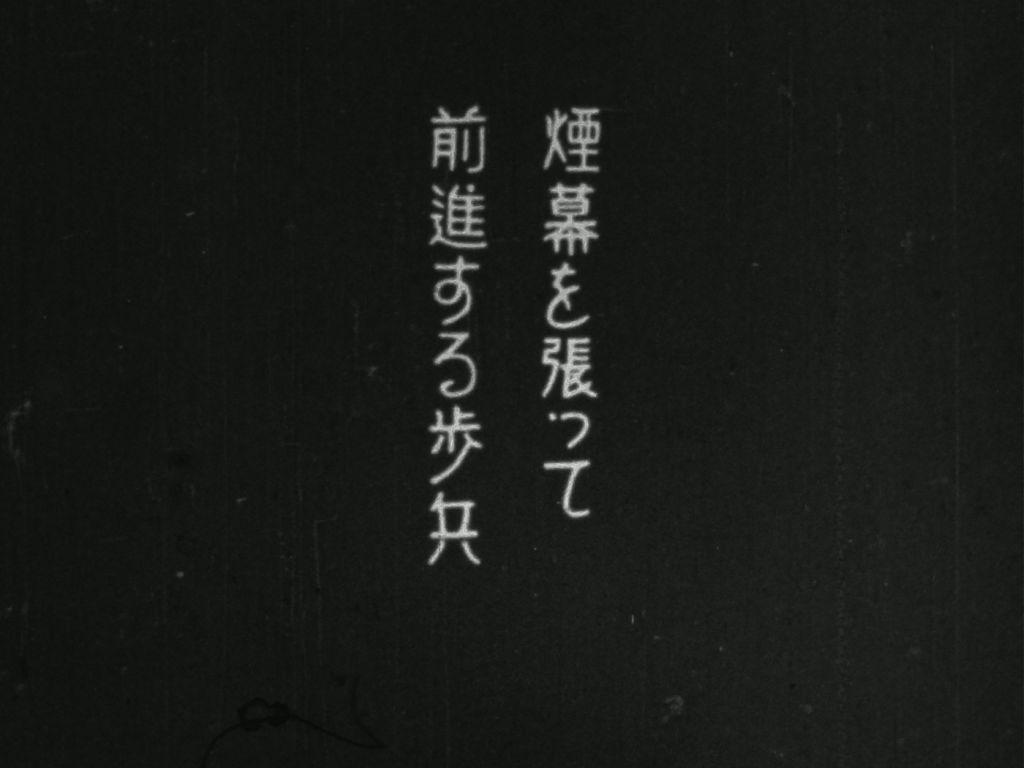 煙幕を張って
前進する歩兵